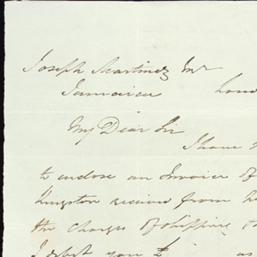 Joseph Martinez
Jamaica
My Dear Sir
I have
to enclose an Invoice of
Kingston received from
the charges of shipping
you to as